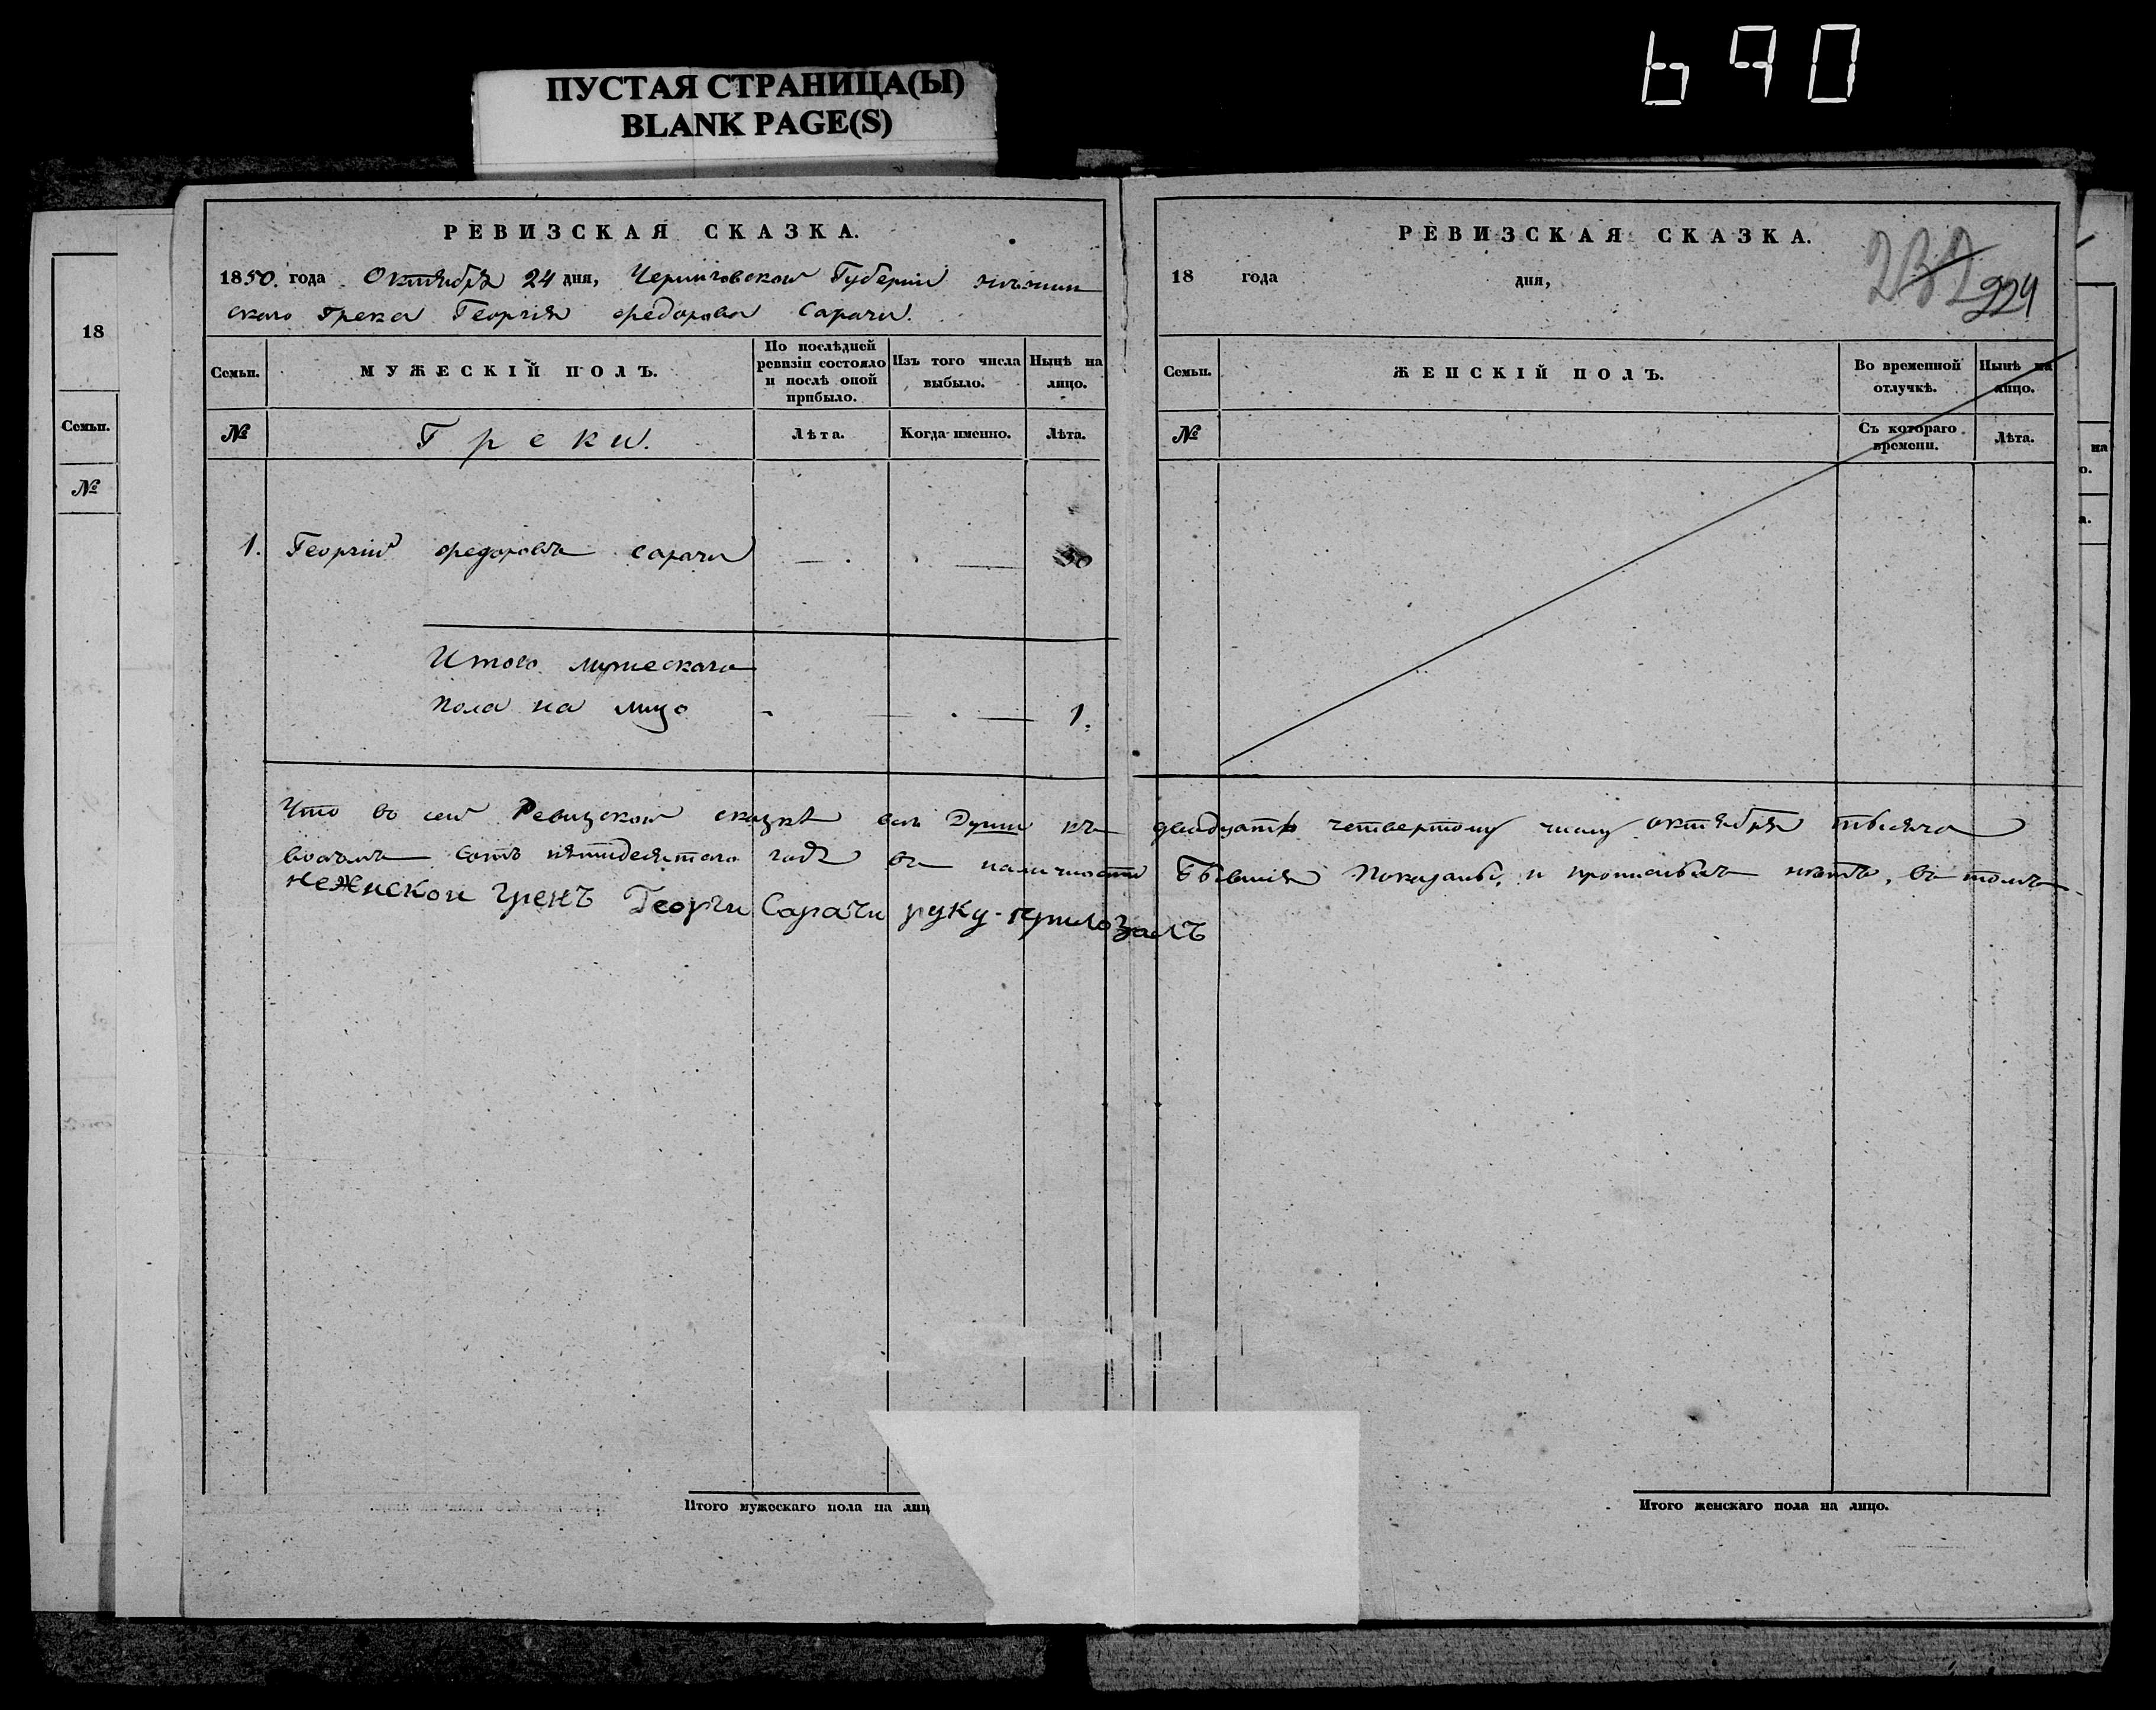 690
ПУСТАЯ СТРАНИЦА(Ы)
BLANK PAGE(S)
18
Семьи.
№
РЕВИЗСКАЯ СКАЗКА.
1850. года Октября 24 дня, Черниговской Губернии нѣжин
скаго Грека Георгія Федорова Сарачи.
Семьи.
МУЖЕСКІЙ ПОЛЪ.
По послѣдней ревизіи состояло и послѣ оной прибыло.
Изъ того числа выбыло.
Нынѣ на лицо.
№
Греки.
Лѣта.
Когда именно.
Лѣта.
1. Георгій Федоровъ Сарачи — — 50
Итого мужескаго
пола на лицо - — 1.
Что во сей Ревизской сказкѣ всѣ Души къ двадцать четвертому числу октября тысяча
восемь сотъ пятидесятаго года въ наличности бывшія показаны, и прописныхъ нѣтъ, въ томъ
нежнскои грекъ Георги Сарачи руку-приложалъ
Итого мужескаго пола на лиц
РЕВИЗСКАЯ СКАЗКА.
232 224
18 года дня,
Семьи.
ЖЕНСКІЙ ПОЛЪ.
Во временной отлучкѣ.
Нынѣ на лицо.
№
Съ котораго времени.
Лѣта.
Итого женскаго пола на лицо.
на
о.
а.